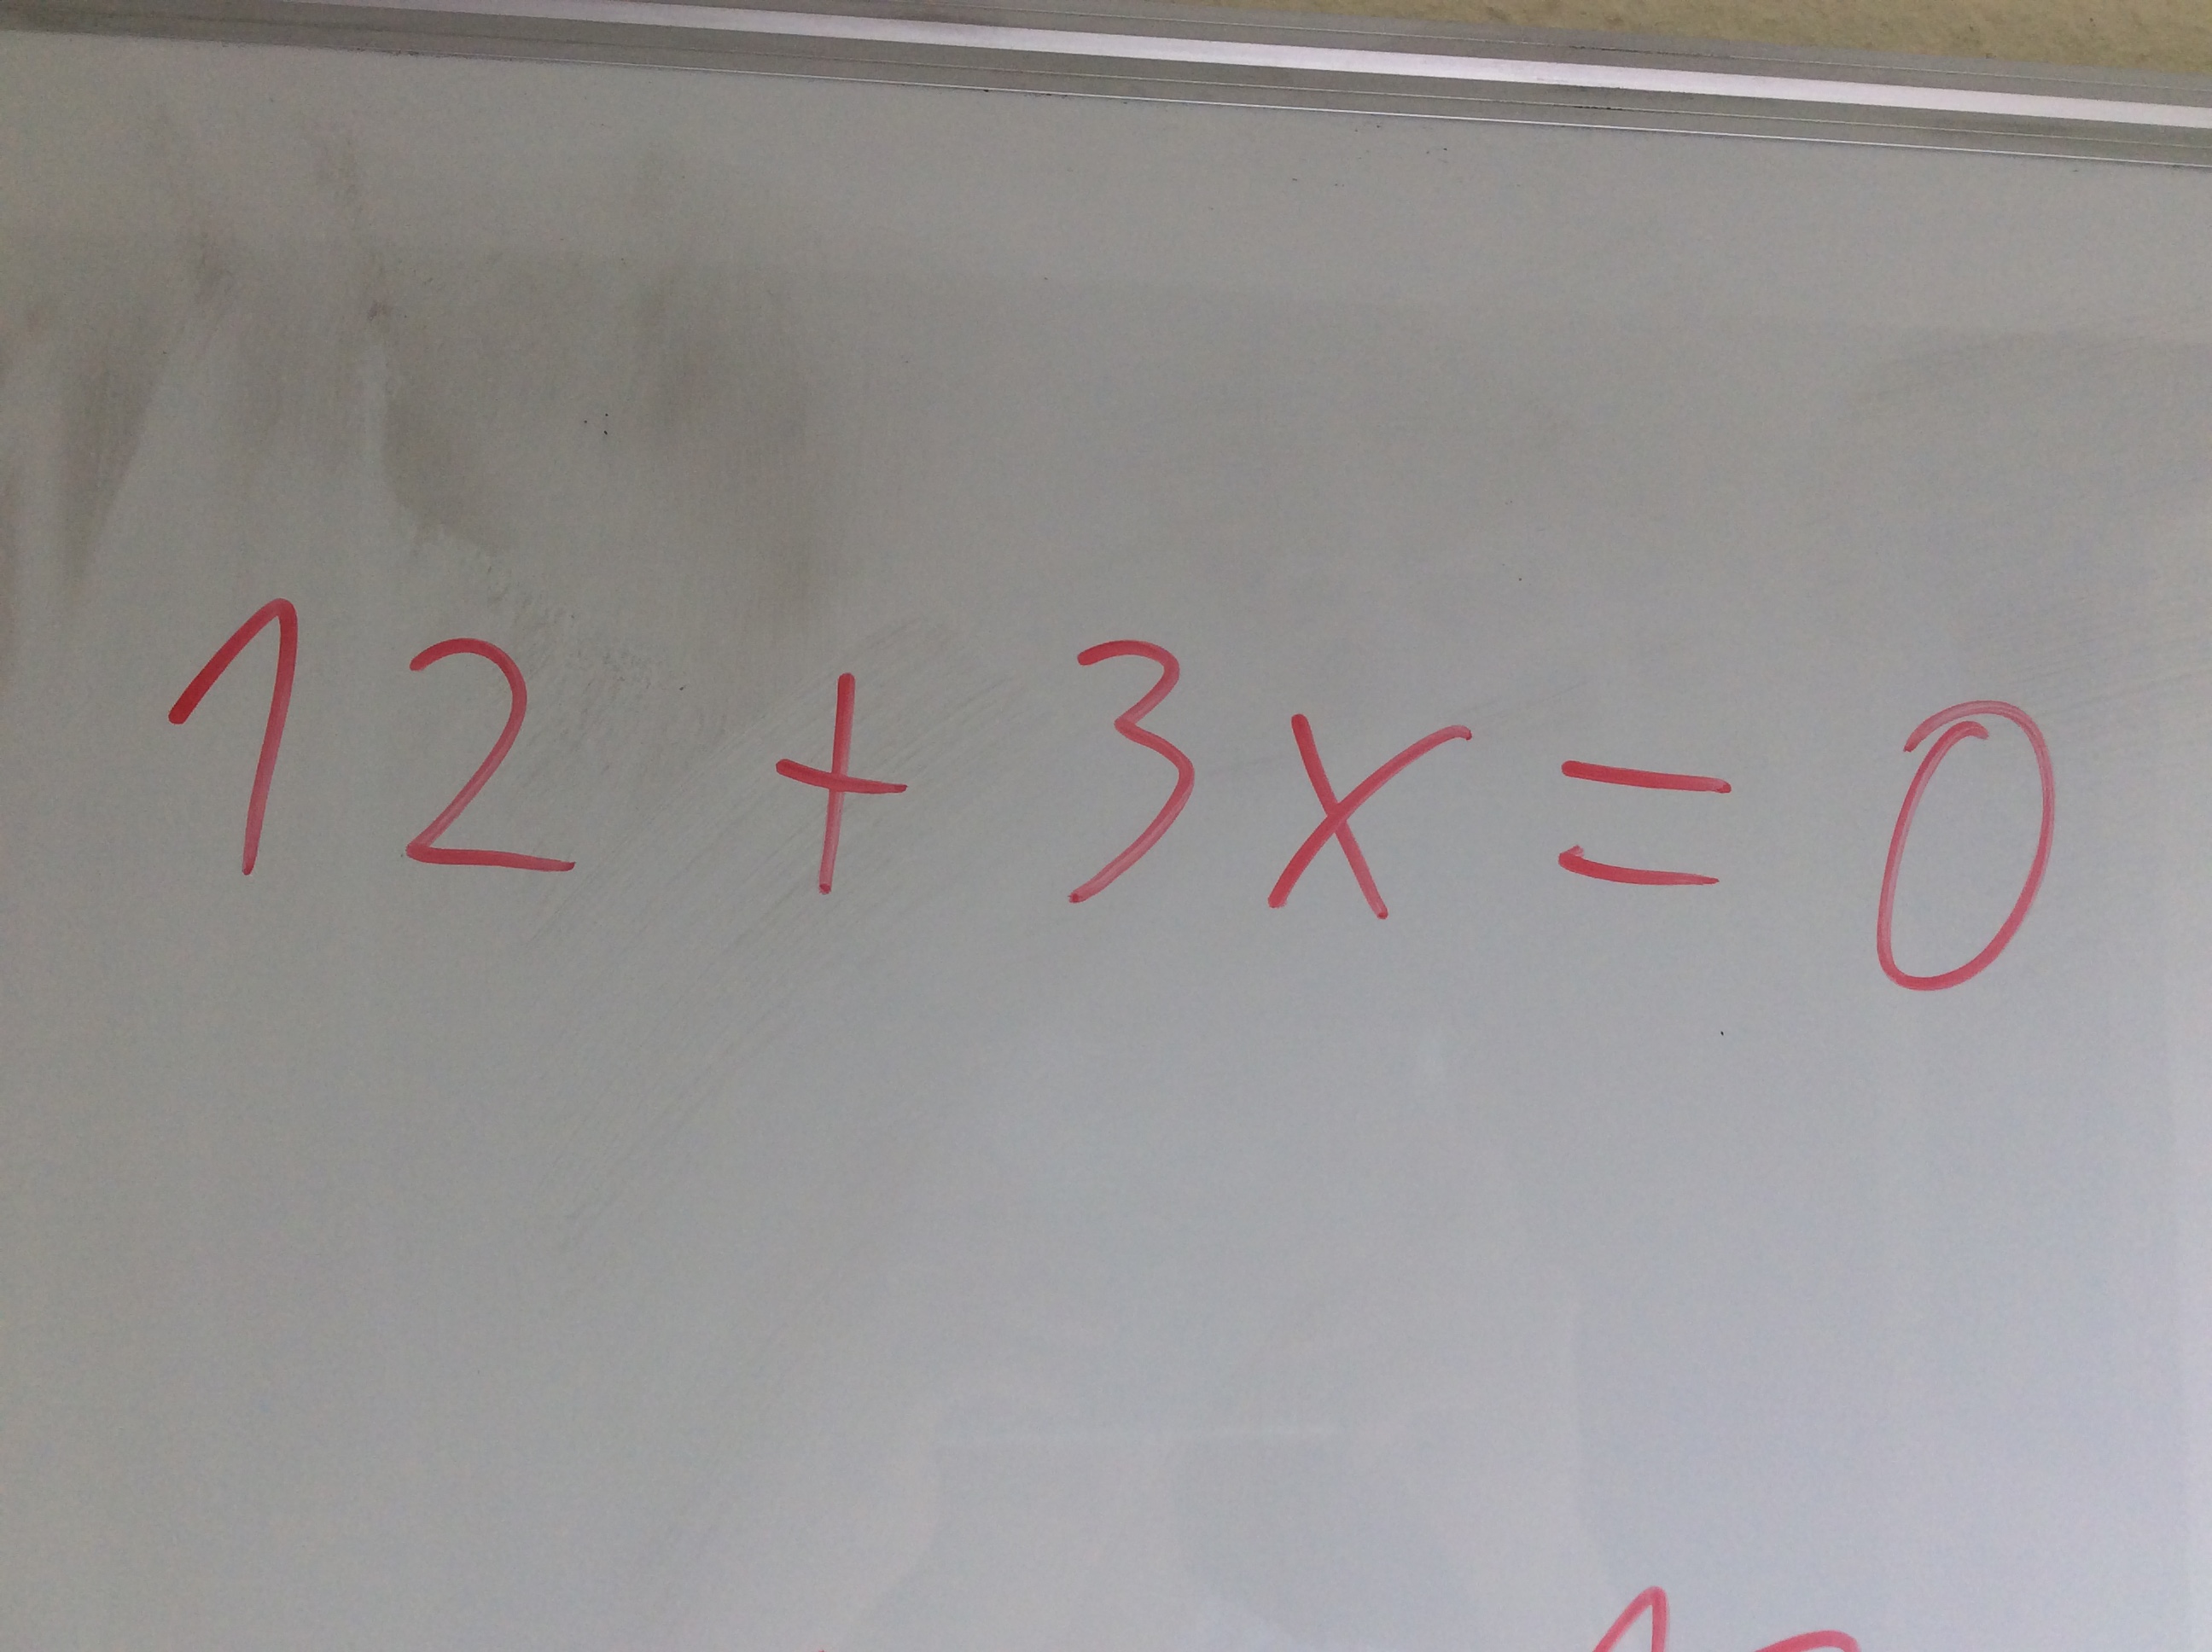 12 + 3x = 0